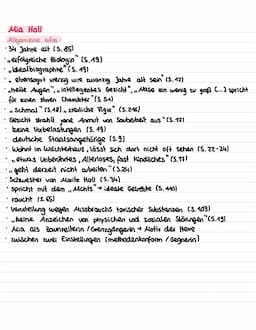 Mia Holl
Allgemeine Infos:
· 34 Jahre alt (S. 85)
· „erfolgreiche Biologin" (S. 19)
· „Idealbiographie" (S. 19)
· „ebensogut vierzig wie zwanzig Jahre alt sein" (S. 17)
· „helle Augen", „intelligentes Gesicht", „Nase ein wenig zu groß (...) spricht
für einen starken Charakter" (S. 51)
· „schmal" (S. 18) „zierliche Figur" (S. 216)
· Gesicht strahlt jene Anmut von Sauberkeit aus" (S. 17)
· keine Vorbelastungen (S. 19)
· deutsche Staatsangehörige (S. 9)
· wohnt in Wächterhaus, lässt sich dort nicht oft sehen (S. 22-24)
· „etwas Unberührtes, Altersloses, fast Kindliches" (S. 17)
· „geht derzeit nicht arbeiten" (S. 24)
· Schwester von Moritz Holl (S. 34)
· spricht mit dem „Nichts" → ideale Geliebte (S. 110)
· raucht (S. 65)
· Verurteilung wegen Missbrauchs toxischer Substanzen (S. 103)
· „keine Anzeichen von physischen und sozialen Störungen" (S. 19)
· Mia als Zaunreiterin / Grenzgängerin → Motiv der Hexe
zwischen zwei Einstellungen (methodenkonform / Gegnerin)